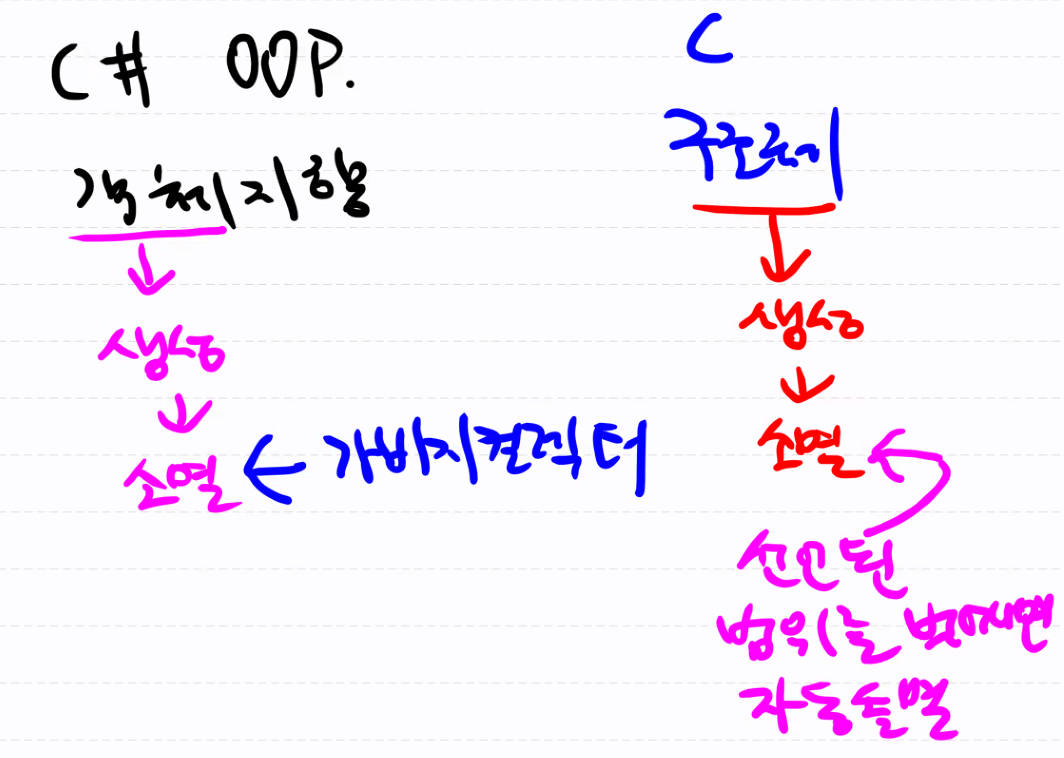 C# OOP.
객체지향
생성
소멸
가바지컬렉터
C
구조체
생성
소멸
선언된
범위를 벗어나면
자동소멸